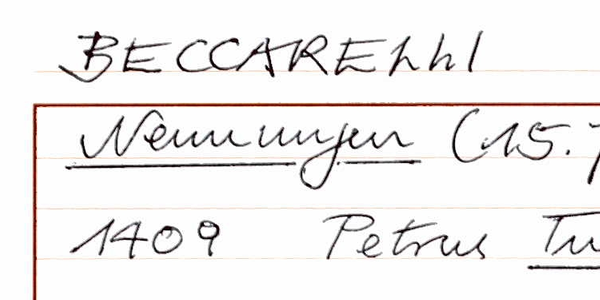 BECCARELLI
Nennungen (15.
1409 Petrus Tu